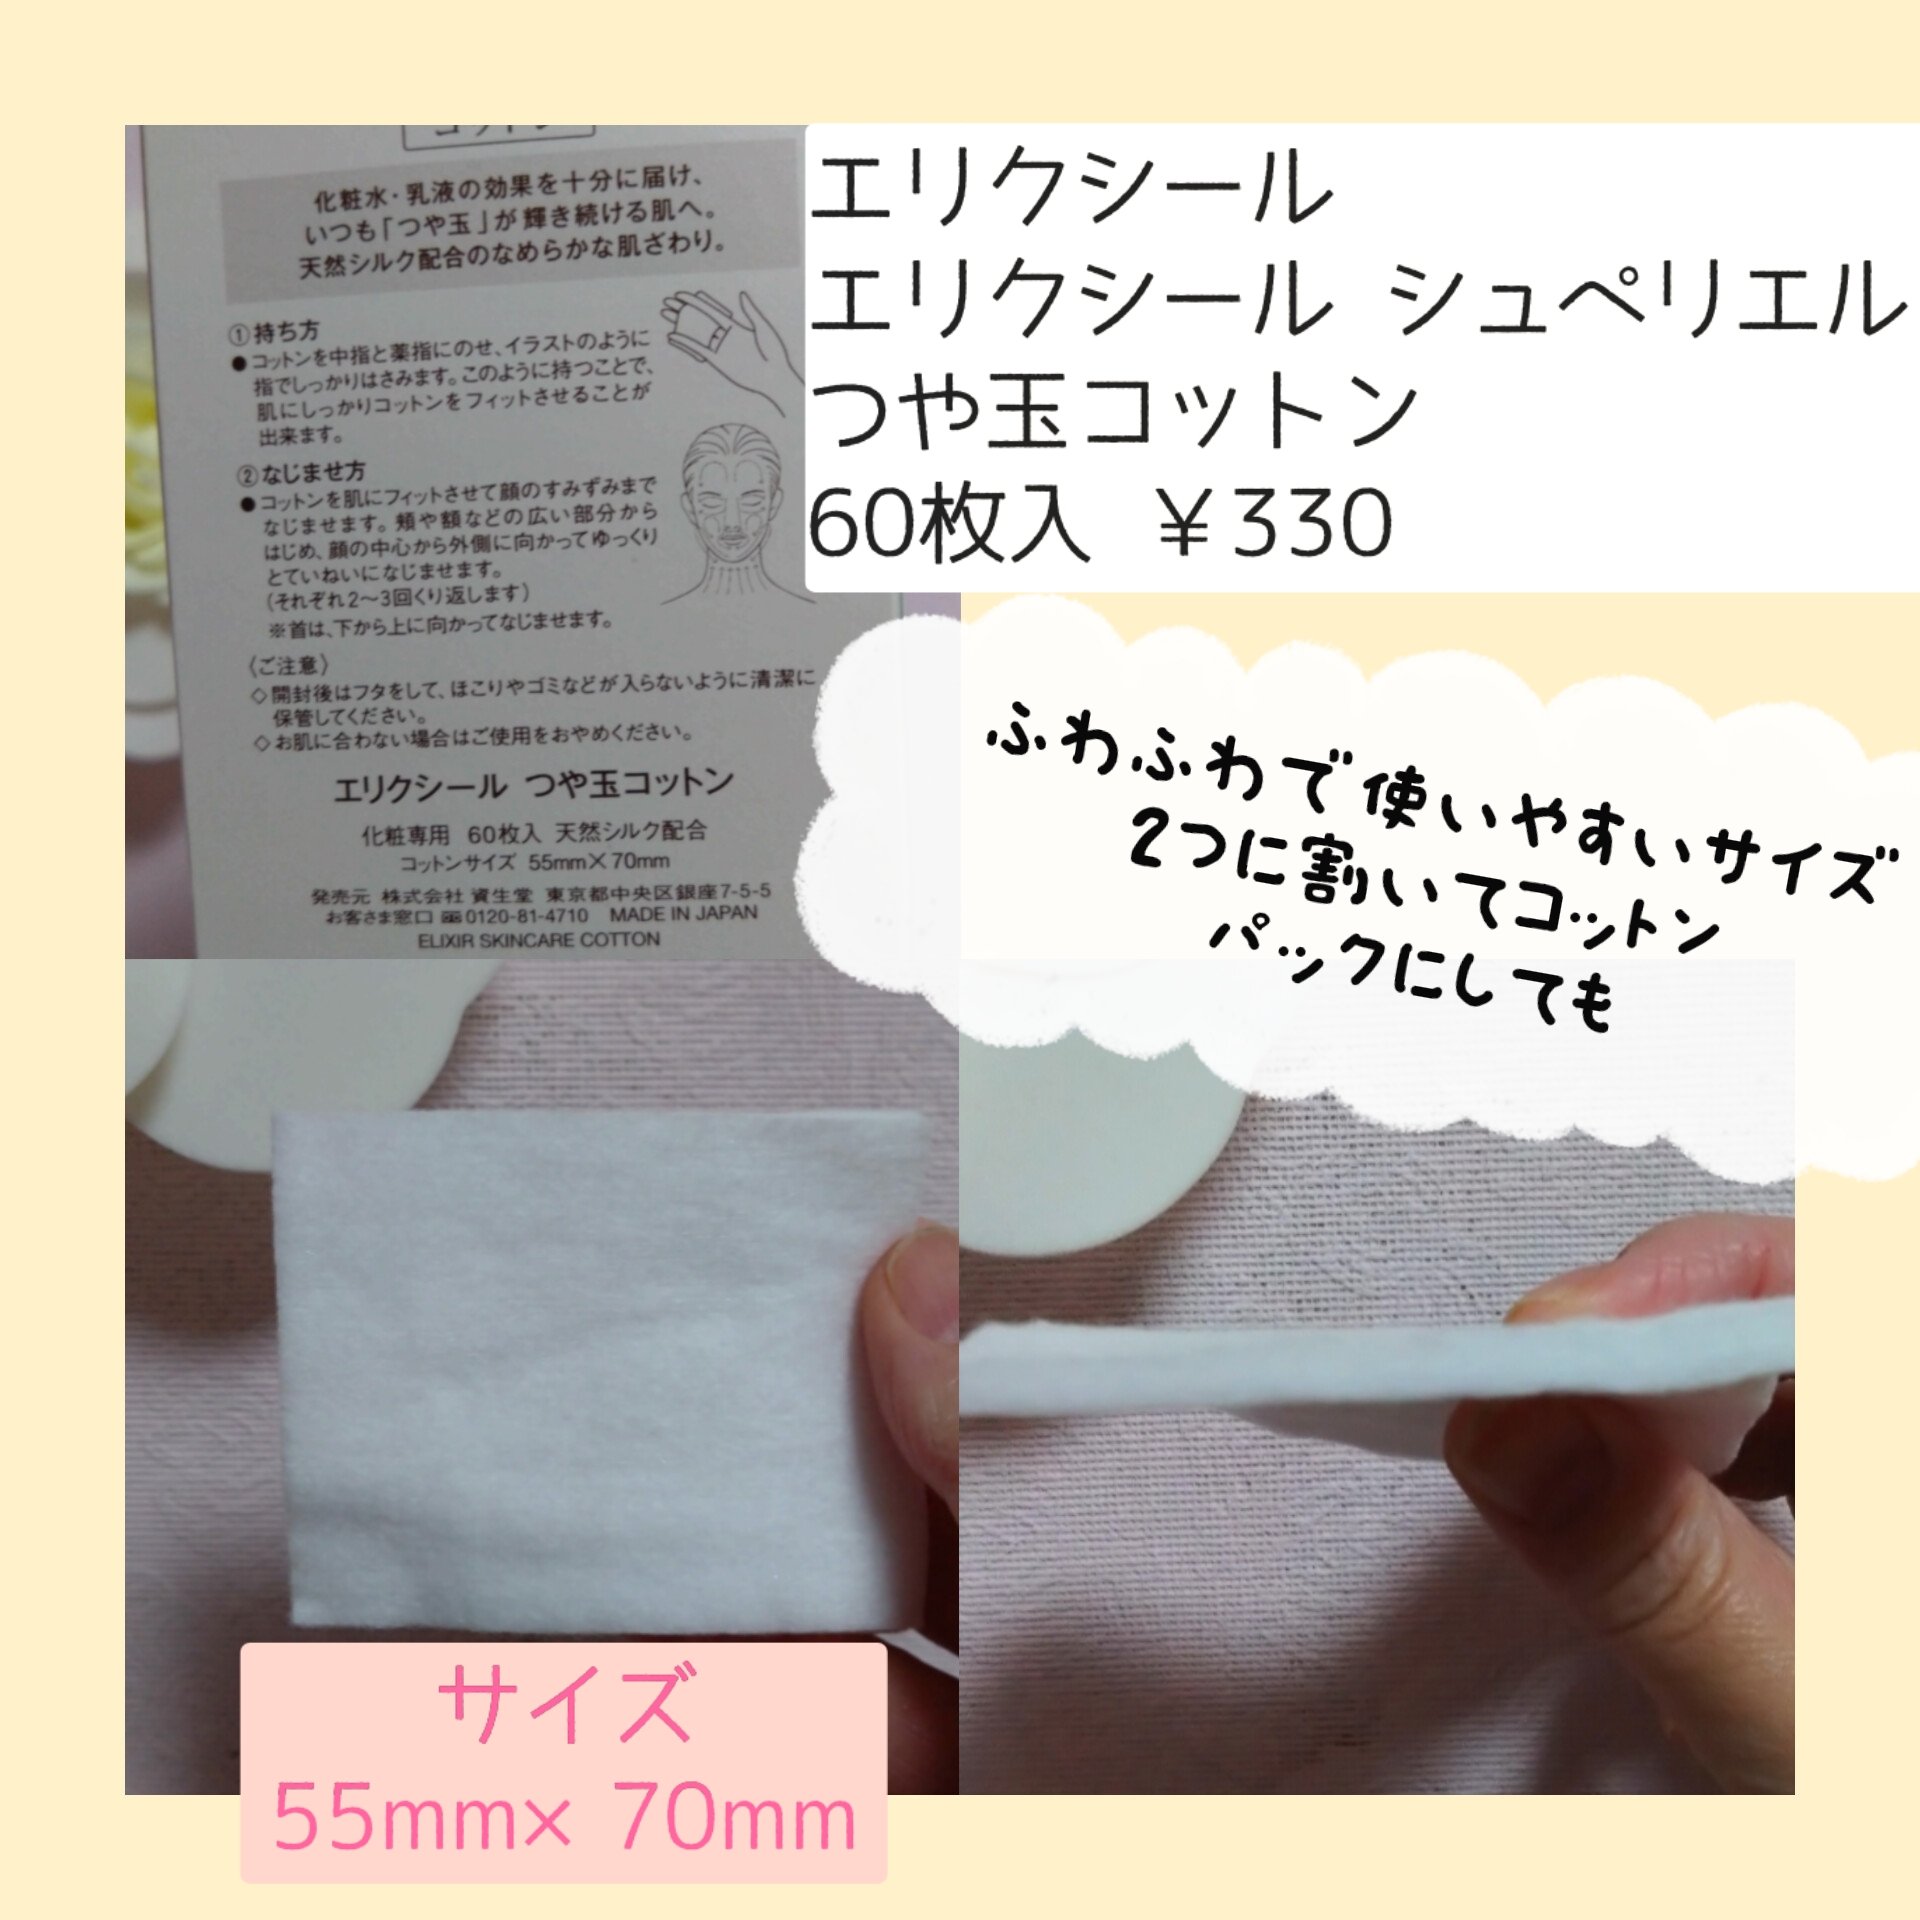 コットン
化粧水・乳液の効果を十分に届け、
いつも「つや玉」が輝き続ける肌へ。
天然シルク配合のなめらかな肌ざわり。
①持ち方
●コットンを中指と薬指にのせ、イラストのように
指でしっかりはさみます。このように持つことで、
肌にしっかりコットンをフィットさせることが
出来ます。
②なじませ方
●コットンを肌にフィットさせて顔のすみずみまで
なじませます。頬や額などの広い部分から
はじめ、顔の中心から外側に向かってゆっくり
とていねいになじませます。
(それぞれ2～3回くり返します)
※首は、下から上に向かってなじませます。
〈ご注意〉
◇開封後はフタをして、ほこりやゴミなどが入らないように清潔に
保管してください。
◇お肌に合わない場合はご使用をおやめください。
エリクシール つや玉コットン
化粧専用 60枚入 天然シルク配合
コットンサイズ 55mm×70mm
発売元 株式会社 資生堂 東京都中央区銀座7-5-5
お客さま窓口 0120-81-4710 MADE IN JAPAN
ELIXIR SKINCARE COTTON
エリクシール
エリクシール シュペリエル
つや玉コットン
60枚入 ￥330
ふわふわで使いやすいサイズ
2つに割いてコットン
パックにしても
サイズ
55mm× 70mm